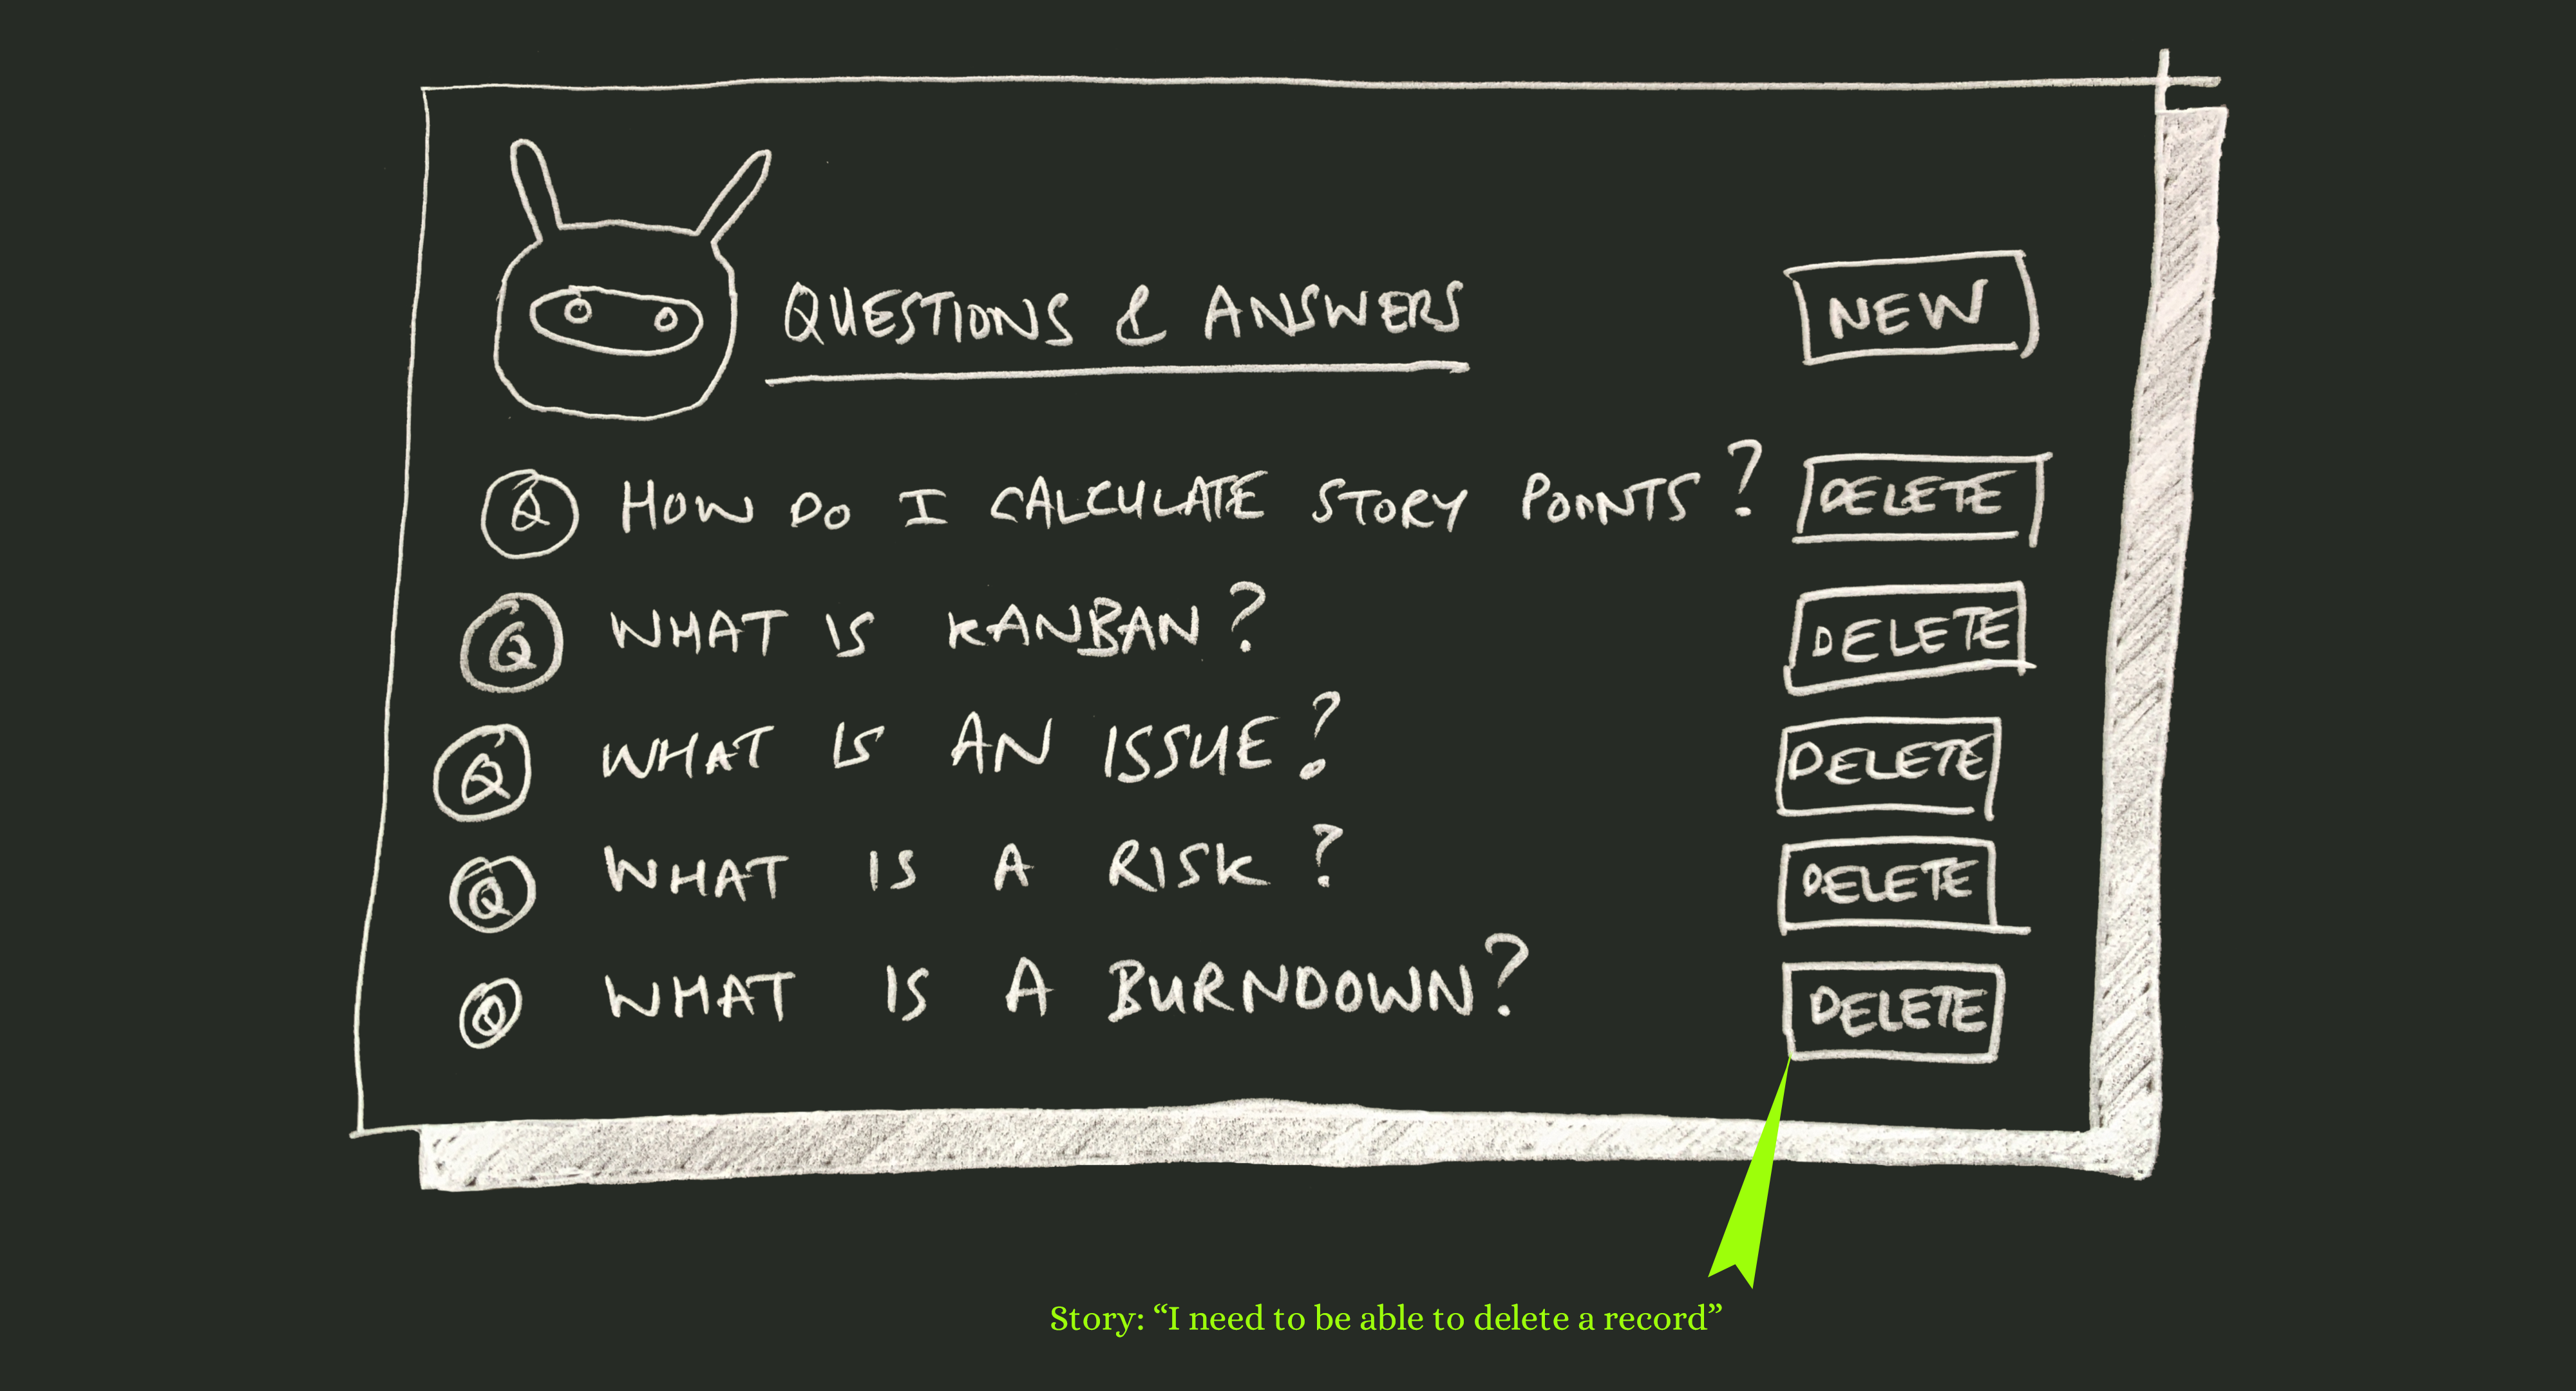 QUESTIONS & ANSWERS
NEW
Q HOW DO I CALCULATE STORY POINTS? DELETE
Q WHAT IS KANBAN? DELETE
Q WHAT IS AN ISSUE? DELETE
Q WHAT IS A RISK? DELETE
Q WHAT IS A BURNDOWN? DELETE
Story: “I need to be able to delete a record”